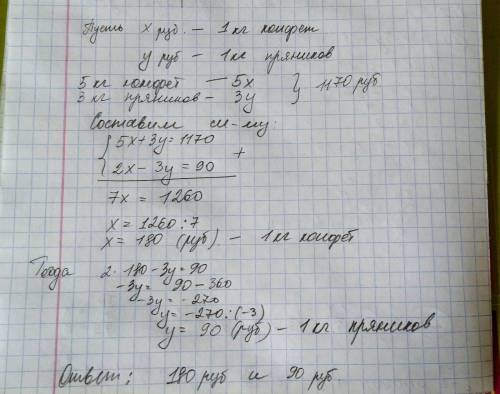 Пусть x руб. – 1 кг конфет
y руб – 1 кг пряников
5 кг конфет – 5x
3 кг пряников – 3y } 1170 руб
Составим си-му:
{ 5x + 3y = 1170
2x – 3y = 90 +
7x = 1260
x = 1260 : 7
x = 180 (руб) – 1 кг конфет
Тогда 2 · 180 – 3y = 90
-3y = 90 – 360
-3y = -270
y = -270 : (-3)
y = 90 (руб) – 1 кг пряников
Ответ: 180 руб и 90 руб.